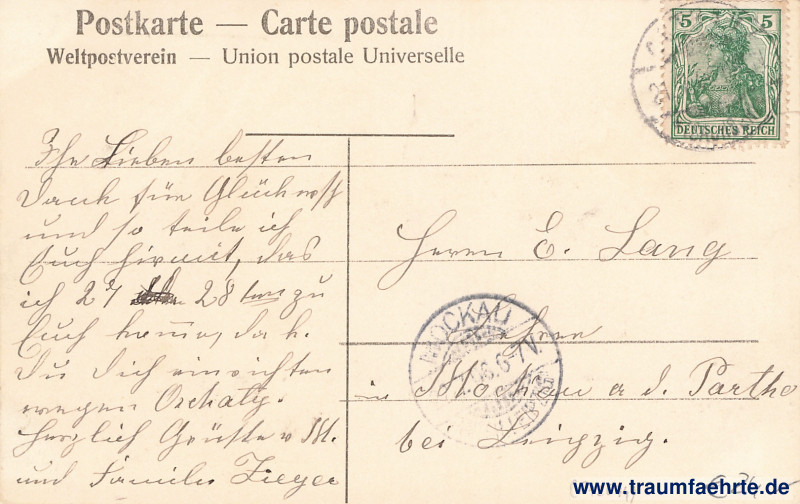 Postkarte — Carte postale
Weltpostverein — Union postale Universelle
5 5
DEUTSCHES REICH
Ihr Lieben besten
Dank für
und so teile ich
Euch hirmit, das
ich 27 28 zu
Euch komme, da k.
Du Dich einrichten
wegen Oschatz.
Herzlich Grüße v M.
und Familie Zieger
Herrn E. Lang
Lehrer
in Mockau a d. Parthe
bei Leipzig.
MOCKAU
6-7V
www.traumfaehrte.de